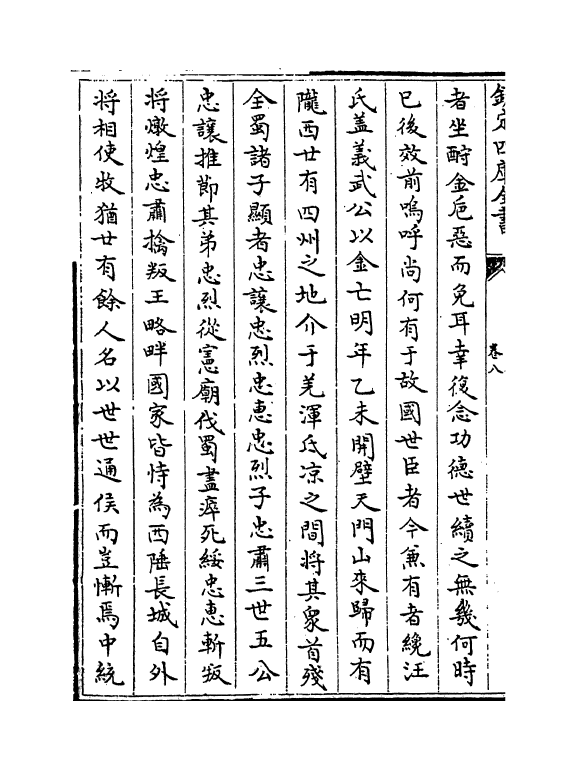 欽定四庫全書
卷八
者坐酎金戹惡而免耳幸復念功德世續之無幾何時
已後效前嗚呼尚何有于故國世臣者今兼有者纔汪
氏盖義武公以金亡明年乙未開壁天門山來歸而有
隴西廿有四州之地介于羌渾氐凉之間將其衆首殘
全蜀諸子顯者忠讓忠烈忠惠忠烈子忠肅三世五公
忠讓推節其弟忠烈從憲廟伐蜀盡瘁死綏忠惠斬叛
將燉煌忠肅擒叛王略畔國家皆恃為西陲長城自外
將相使牧猶廿有餘人名以世世通侯而豈慚焉中統